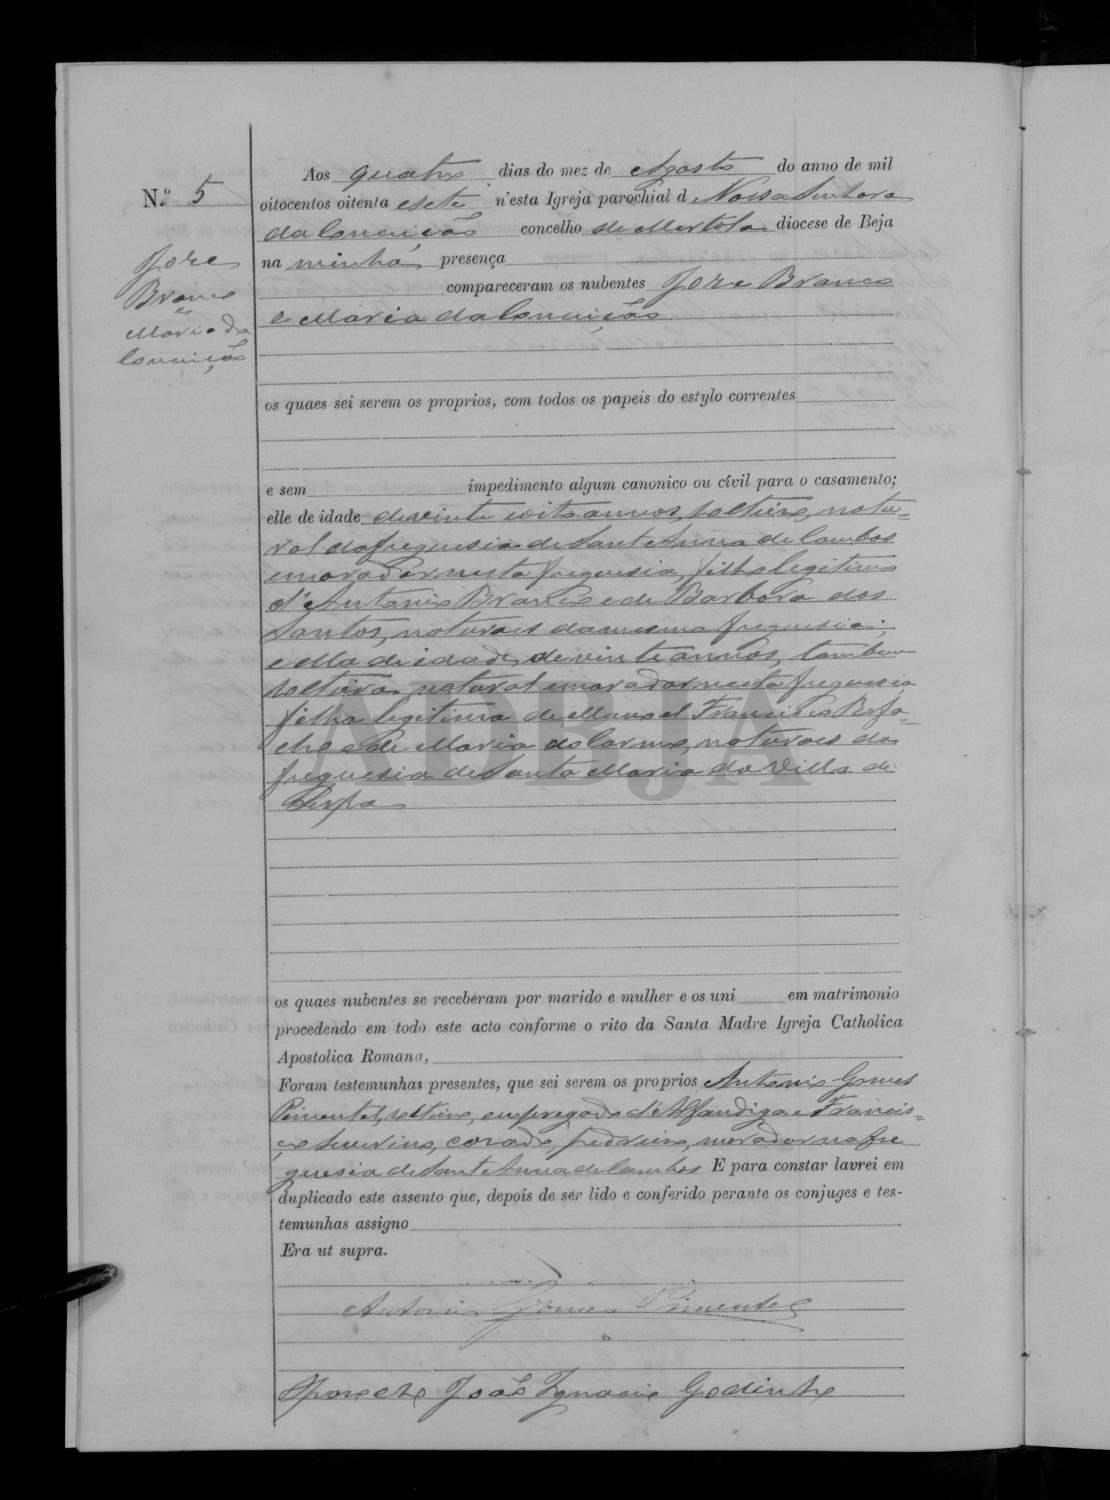 N.º 5
Jose
Branco
e
Maria da
Conceição
Aos quatro dias do mez de Agosto do anno de mil
oitocentos oitenta e sete n'esta Igreja parochial d Nossa Senhora
da Conceição concelho de Mertola diocese de Beja
na minha presença
compareceram os nubentes Jose Branco
e Maria da Conceição
os quaes sei serem os proprios, com todos os papeis do estylo correntes
e sem impedimento algum canonico ou civil para o casamento;
elle de idade de vinte e oito annos, solteiro, natu=
ral da freguesia de Sant Anna de Cambas
e morador nesta freguesia, filho legitimo
d'Antonio Branco e de Barbara dos
Santos, naturaes da mesma freguesia;
e ella de idade, de vinte annos, tambem
solteira natural e morador nesta freguesia
filha legitima de Manoel Francisco
e de Maria do Carmo, naturaes da
freguesia de Santa Maria da Villa de
Serpa
ADBJA
os quaes nubentes se receberam por marido e mulher e os uni em matrimonio
procedendo em todo este acto conforme o rito da Santa Madre Igreja Catholica
Apostolica Romana,
Foram testemunhas presentes, que sei serem os proprios Antonio Gomes
Pimentel, solteiro, empregado d'Alfandiga e Francis=
co Severino, casado, pedreiro, morador na fre
guesia de Sant Anna de Cambas E para constar lavrei em
duplicado este assento que, depois de ser lido e conferido perante os conjuges e tes-
temunhas assigno
Era ut supra.
Antonio Gomes Pimentel
O parocho João Ignacio Godinho